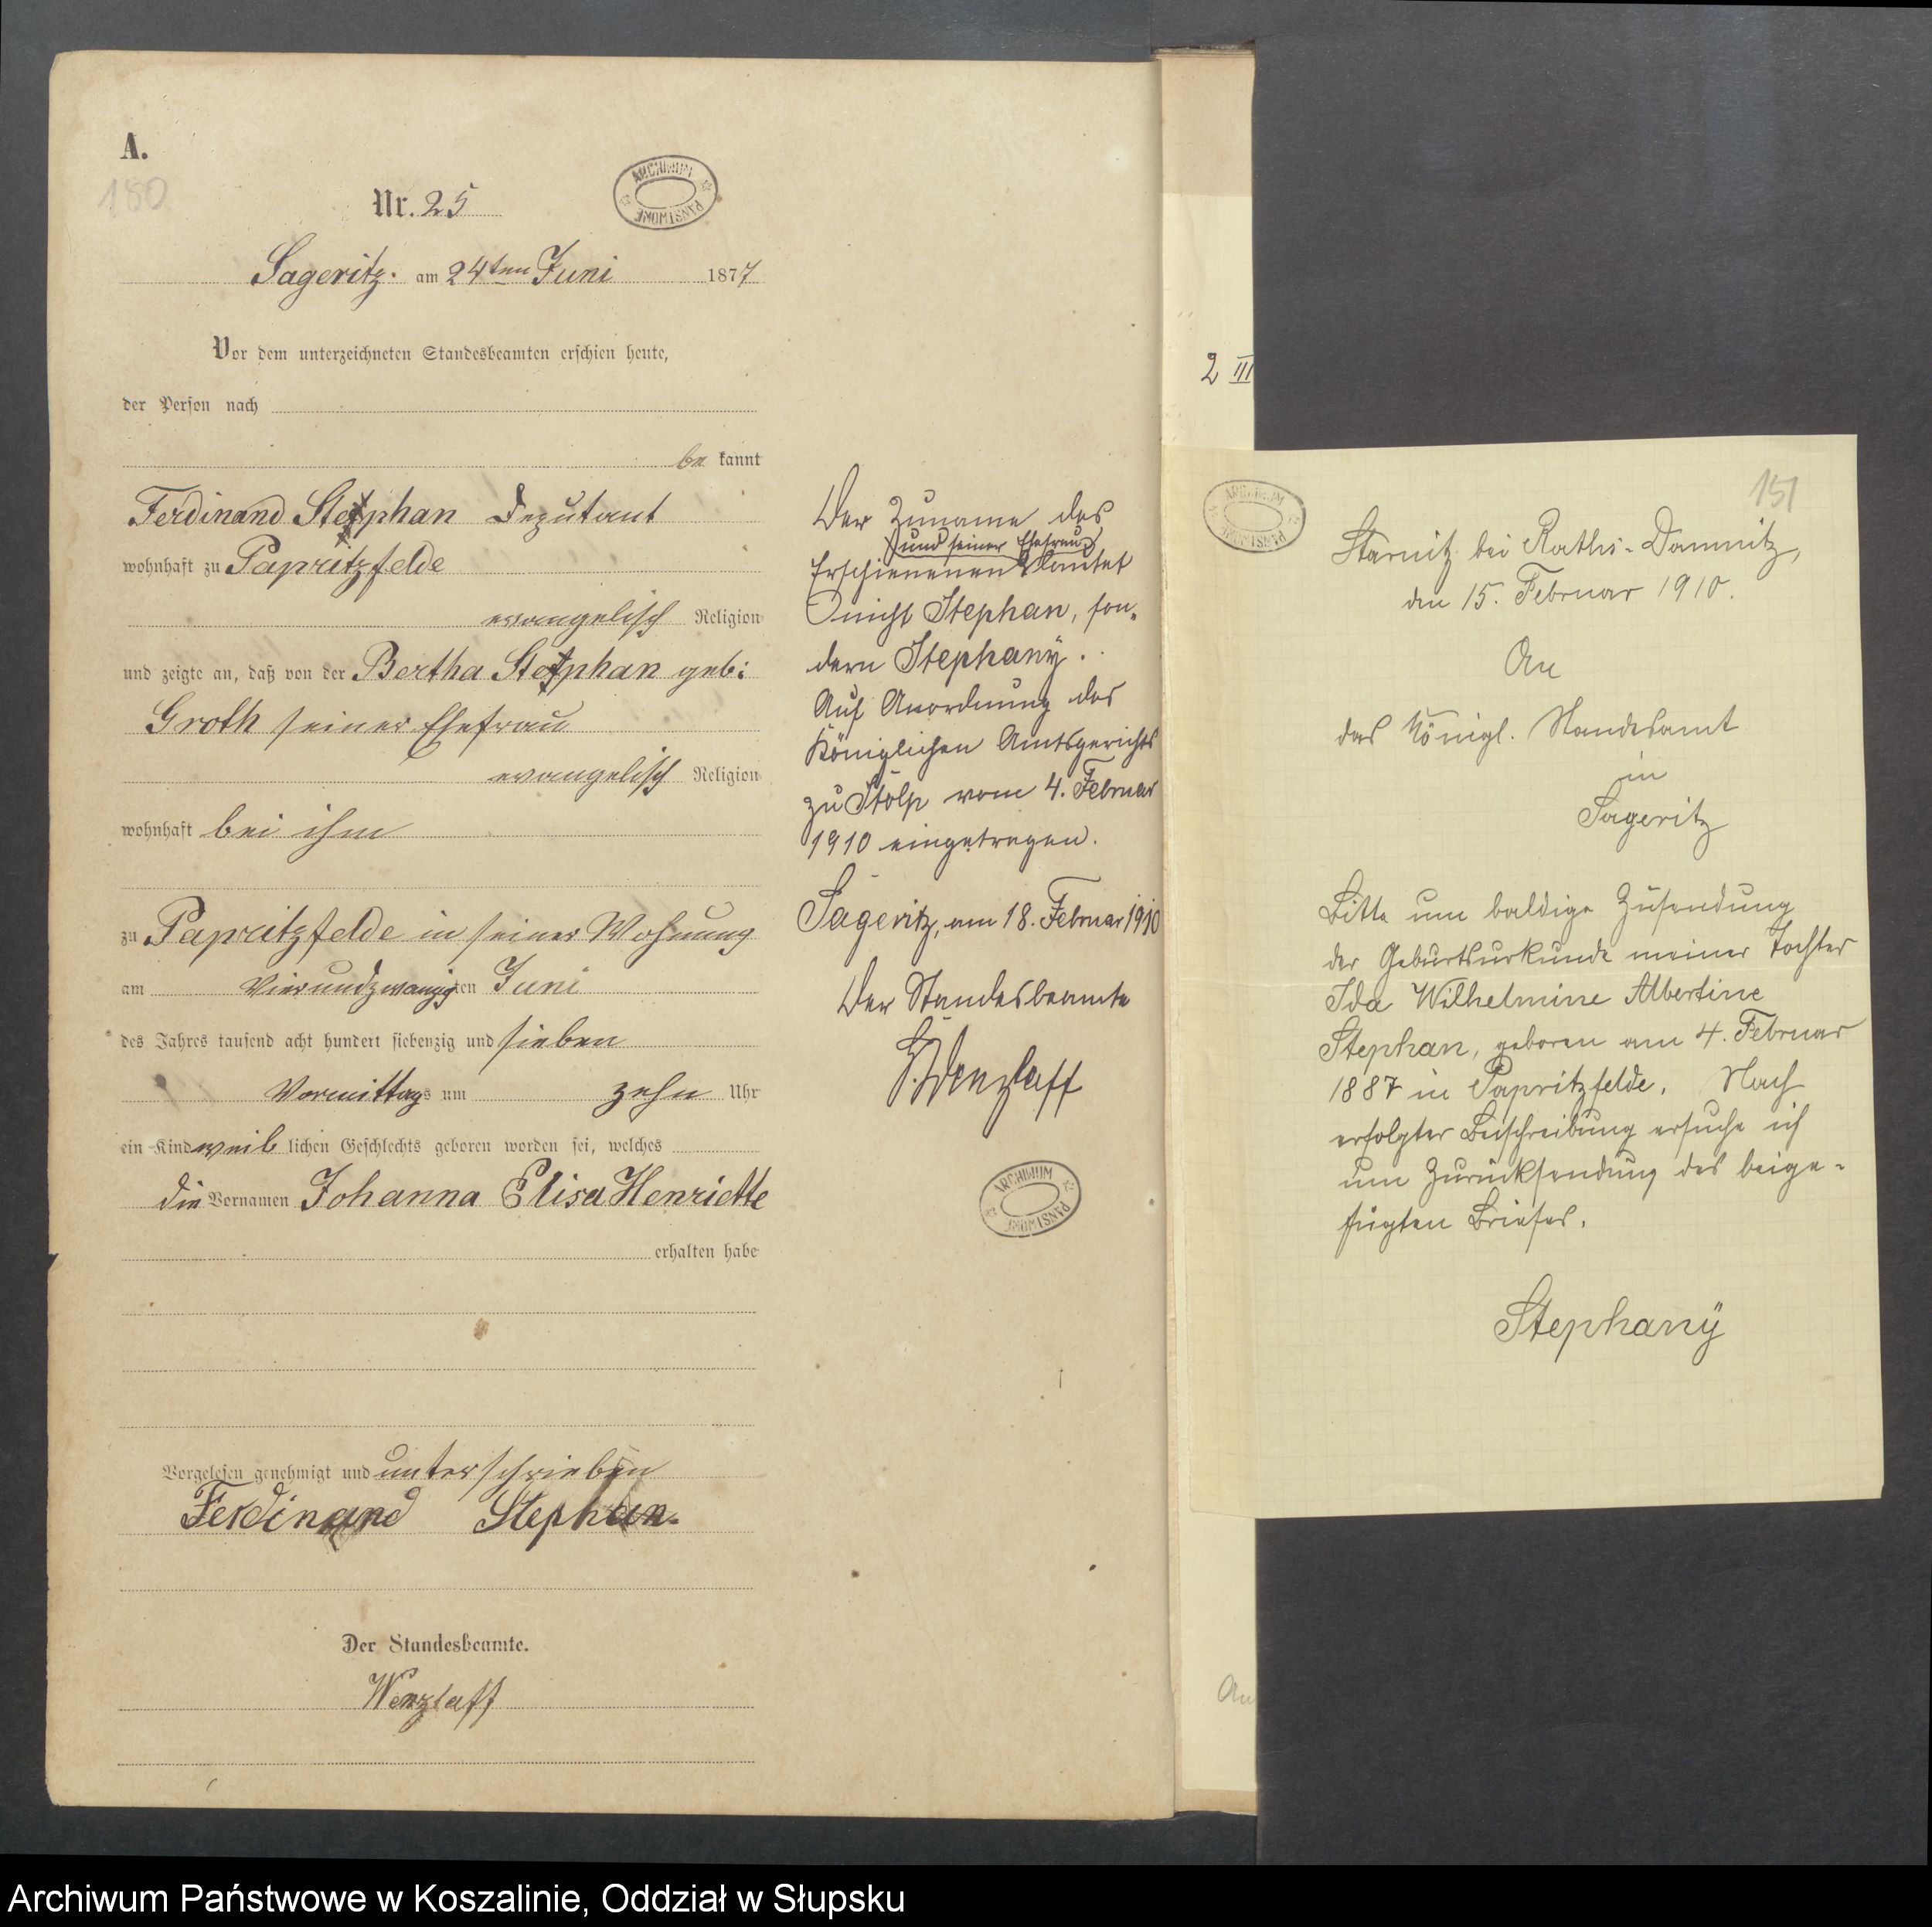 A.
180
Nr. 25
ARCHIWUM PAŃSTWOWE
Sageritz. am 24ten Juni 1877
Vor dem unterzeichneten Standesbeamten erschien heute,
der Person nach
be kannt
Ferdinand Stephan Deputant
wohnhaft zu Papritzfelde
evangelisch Religion
und zeigte an, daß von der Bertha Stephan geb:
Groth seiner Ehefrau
evangelisch Religion
wohnhaft bei ihm
zu Papritzfelde in seiner Wohnung
am Vierundzwanzigten Juni
des Jahres tausend acht hundert siebenzig und sieben
Vormittags um zehn Uhr
ein Kind weiblichen Geschlechts geboren worden sei, welches
die Vornamen Johanna Elisa Henriette
erhalten habe
Vorgelesen genehmigt und unterschrieben
Ferdinand Stephan.
Der Standesbeamte.
Wenzlaff
Der Zuname des
und seiner Ehefrau
Erschienenen lautet
nicht Stephan, son-
dern Stephanÿ.
Auf Anordnung des
Königlichen Amtsgerichts
zu Stolp vom 4. Februar
1910 eingetragen.
Sageritz, am 18. Februar 1910
Der Standesbeamte
Wenzlaff
ARCHIWUM PAŃSTWOWE
2 III
An
ARCHIWUM PAŃSTWOWE
151
Starnitz bei Raths-Damnitz,
den 15. Februar 1910.
An
das Königl. Standesamt
in
Sageritz
Bitte um baldige Zusendung
der Geburtsurkunde meiner Tochter
Ida Wilhelmine Albertine
Stephan, geboren am 4. Februar
1887 in Papritzfelde. Nach
erfolgter Beischreibung ersuche ich
um Zurücksendung des beige-
fügten Briefes.
Stephanÿ
Archiwum Państwowe w Koszalinie, Oddział w Słupsku